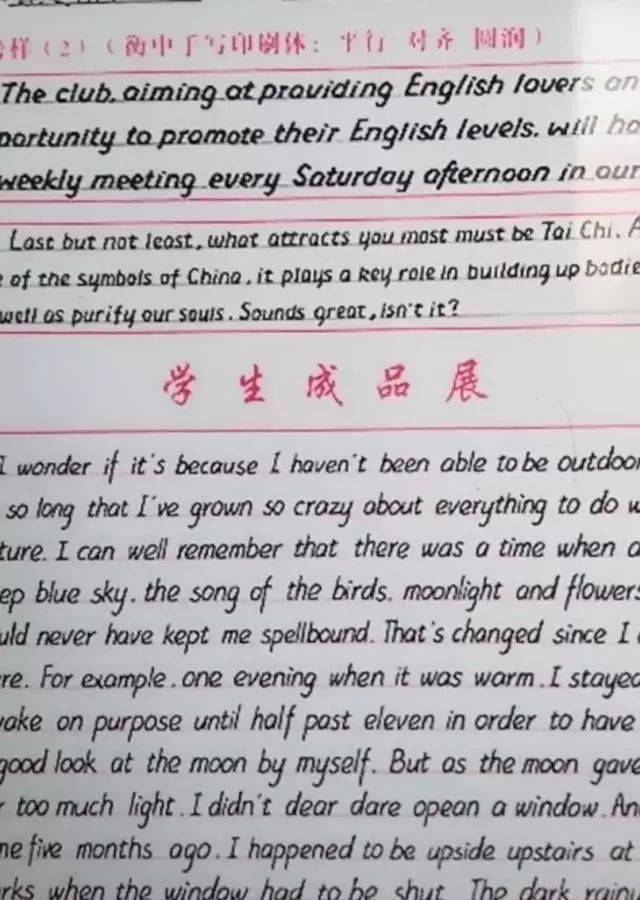 样（2）（衡中手写印刷体：平行 对齐 圆润）
The club, aiming at providing English lovers an
portunity to promote their English levels, will ho
weekly meeting every Saturday afternoon in our
Last but not least, what attracts you most must be Tai Chi. A
e of the symbols of China, it plays a key role in building up bodie
well as purify our souls. Sounds great, isn't it?
学生成品展
I wonder if it's because I haven't been able to be outdoor
so long that I've grown so crazy about everything to do w
ture. I can well remember that there was a time when a
ep blue sky, the song of the birds, moonlight and flowers
uld never have kept me spellbound. That's changed since I
re. For example, one evening when it was warm, I stayed
vake on purpose until half past eleven in order to have
good look at the moon by myself. But as the moon gave
r too much light, I didn't dear dare opean a window. An
me five months ago, I happened to be upside upstairs at
rks when the window had to be shut. The dark rainy